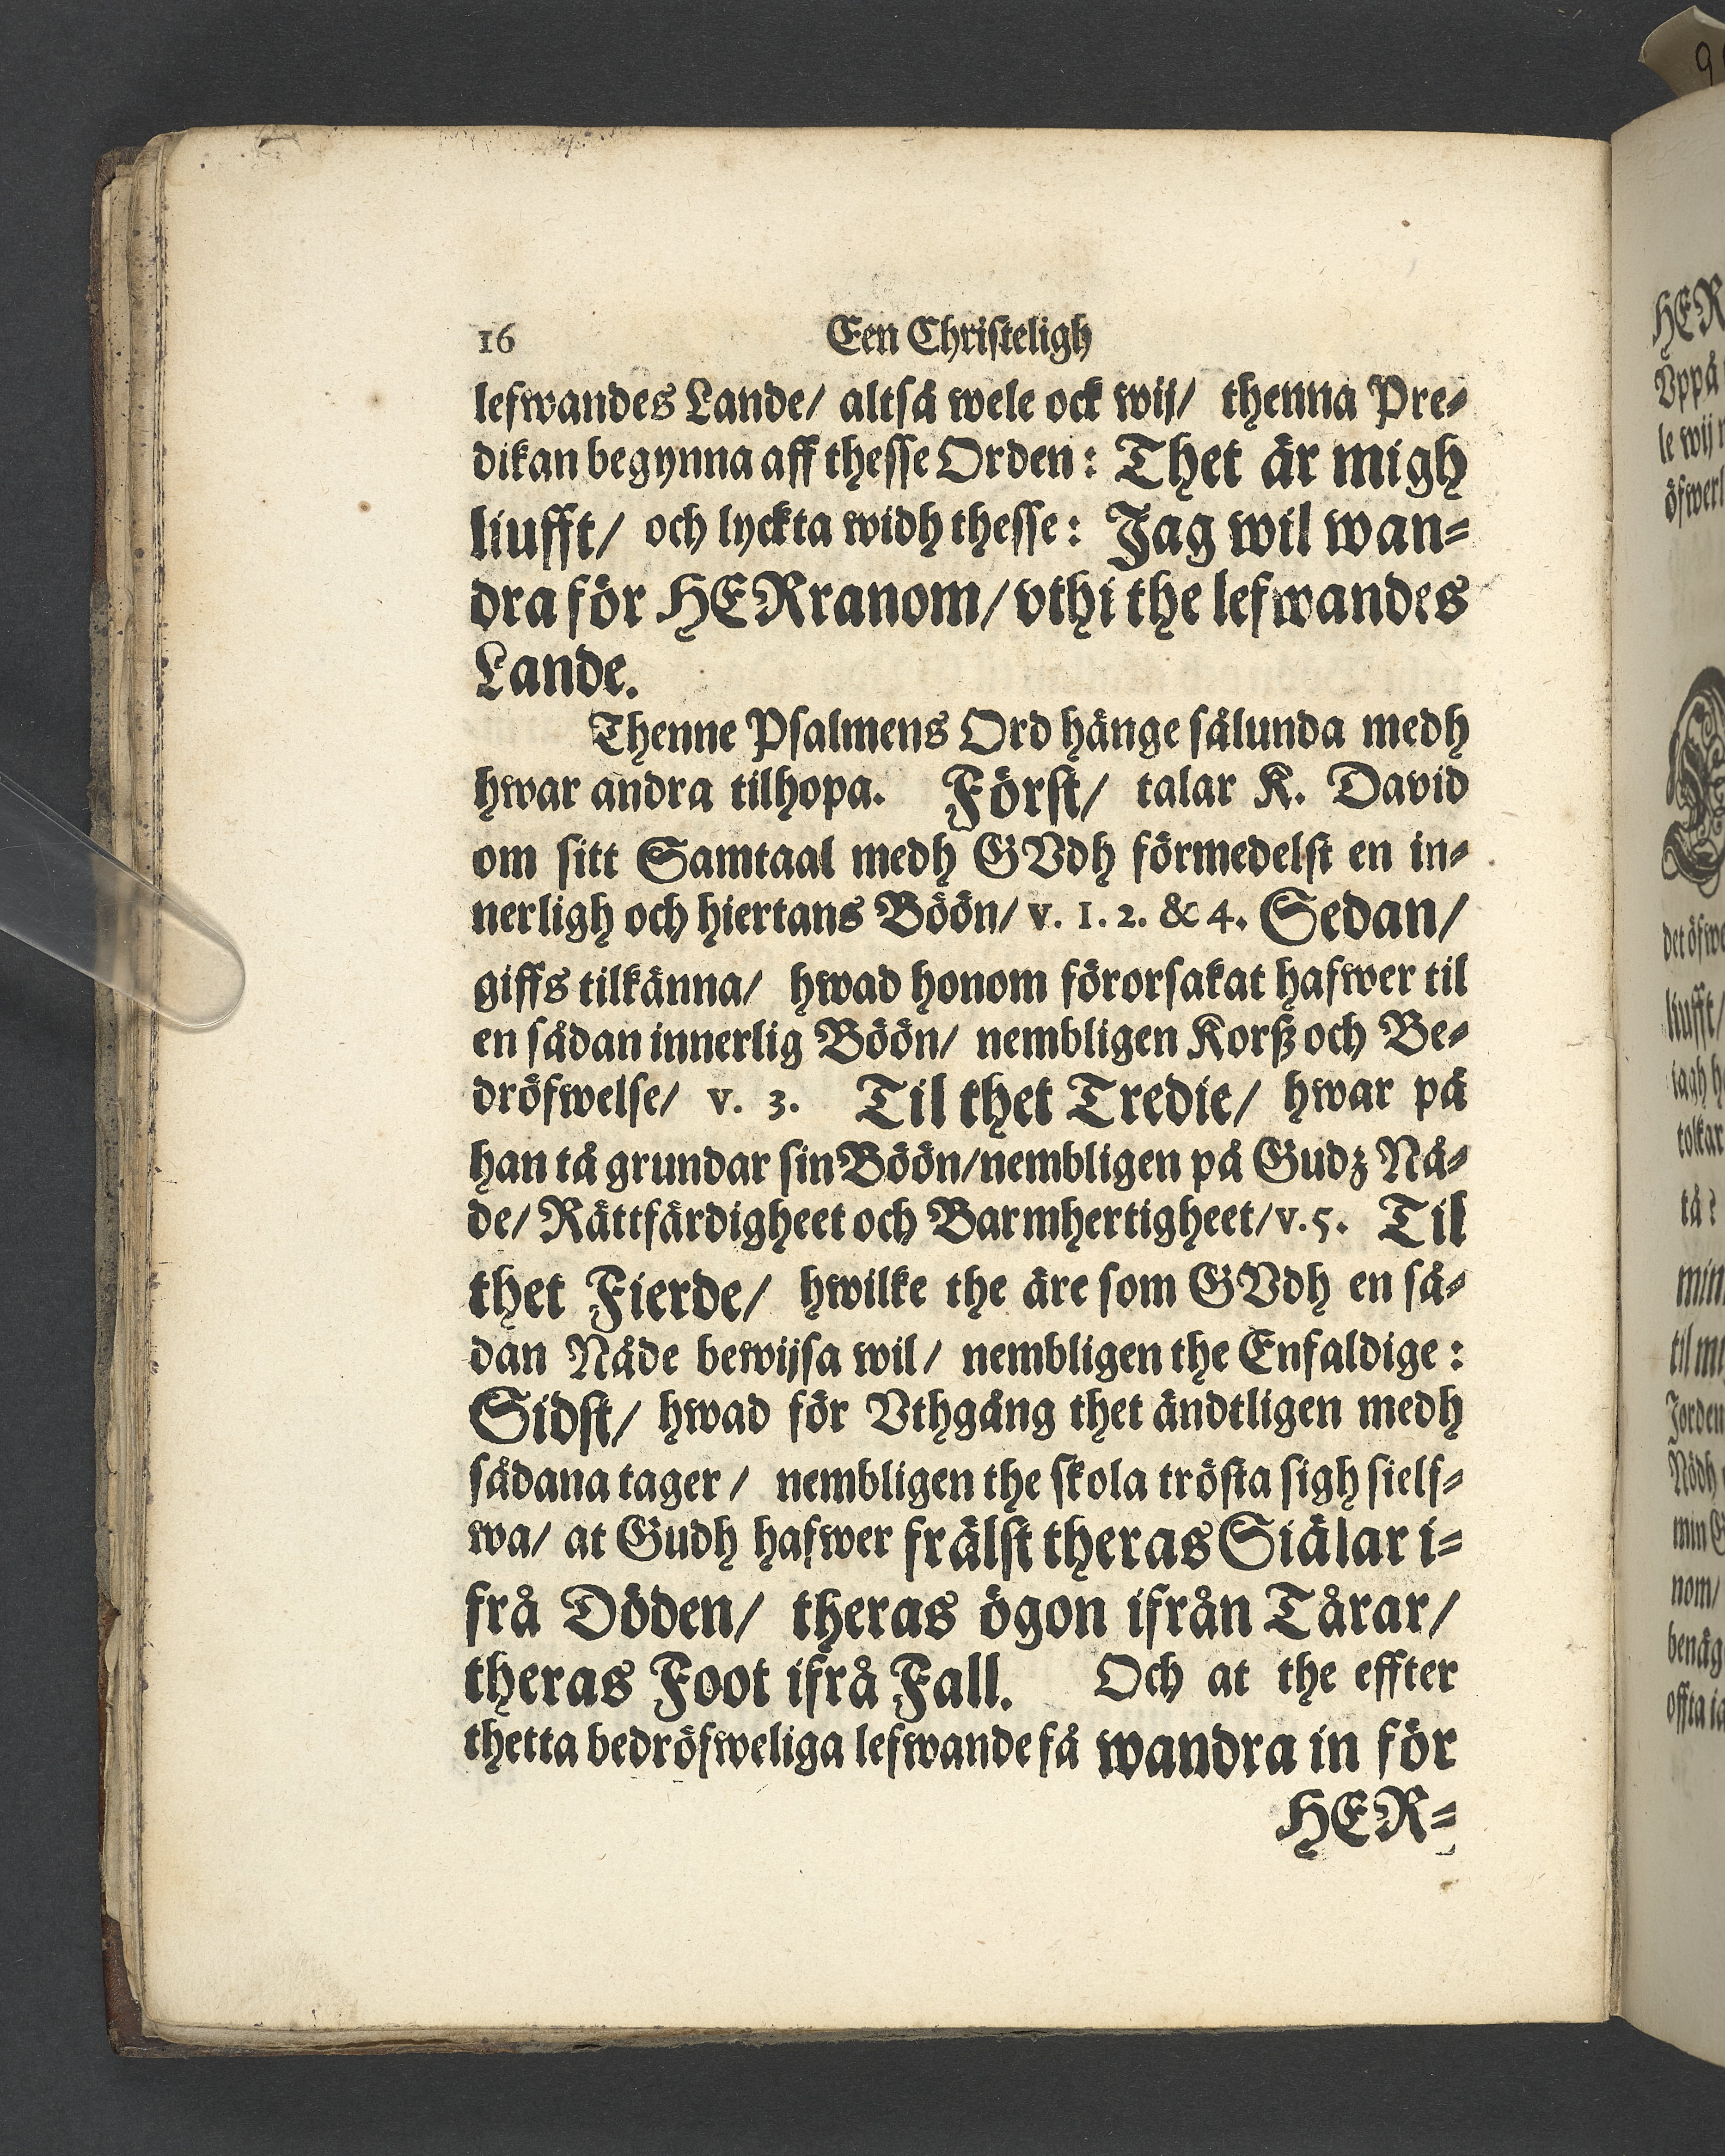 16 Een Christeligh
lefwandes Lande/ altså wele ock wij/ thenna Pre-
dikan begynna aff thesse Orden: Thet är migh
liufft/ och lyckta widh thesse: Jag wil wan-
dra för HERranom/ vthi the lefwandes
Lande.
Thenne Psalmens Ord hänge sålunda medh
hwar andra tilhopa. Först/ talar K. David
om sitt Samtaal medh GVdh förmedelst en in-
nerligh och hiertans Böön/ v. 1. 2. & 4. Sedan/
giffs tilkänna/ hwad honom förorsakat hafwer til
en sådan innerlig Böön/ nembligen Korß och Be-
dröfwelse/ v. 3. Til thet Tredie/ hwar på
han tå grundar sin Böön/ nembligen på Gudz Nå-
de/ Rättfärdigheet och Barmhertigheet/ v. 5. Til
thet Fierde/ hwilke the äre som GVdh en så-
dan Nåde bewijsa wil/ nembligen the Enfaldige:
Sidst/ hwad för Vthgång thet ändtligen medh
sådana tager/ nembligen the skola trösta sigh sielf-
wa/ at Gudh hafwer frälst theras Siälar i-
frå Döden/ theras ögon ifrån Tårar/
theras Foot ifrå Fall. Och at the effter
thetta bedröfweliga lefwande få wandra in för
HER-
HER
Vppå
le wij
öfwer
liufft/
tolkar
tå?
min
Jorden
Nödh
nom/